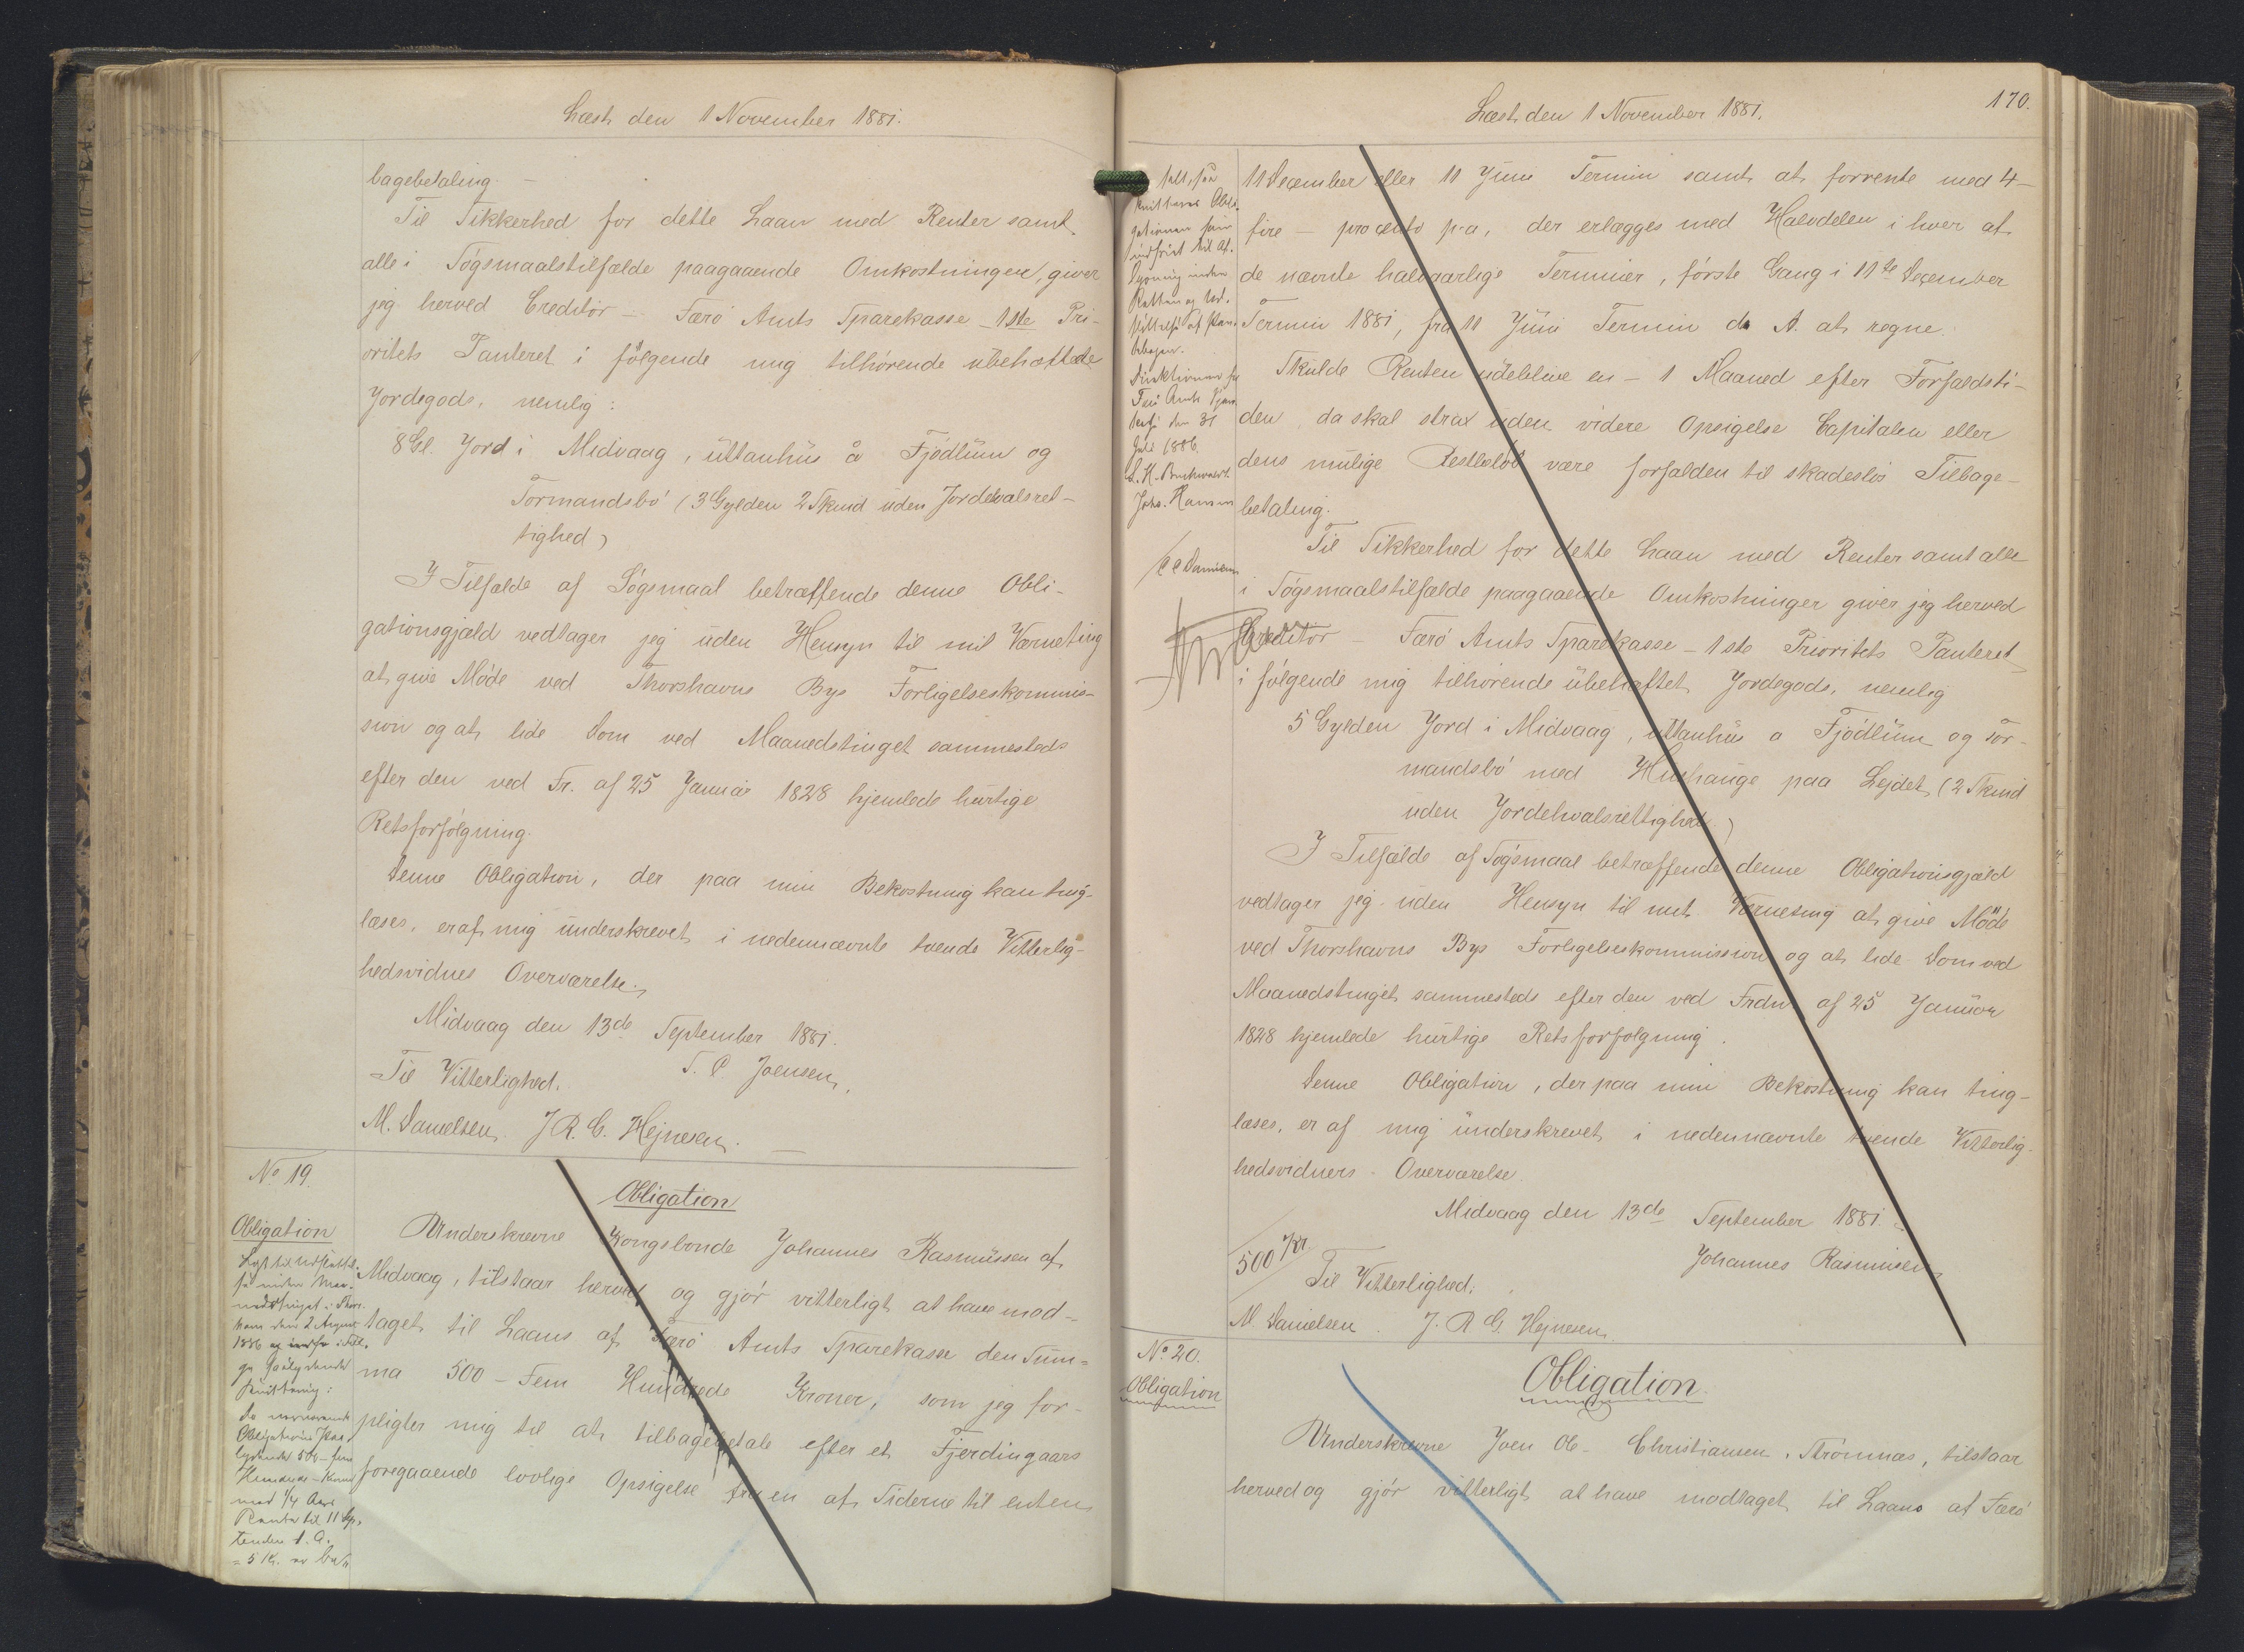 Læst den 1 November 1881.
bagebetaling. —
Til Sikkerhed for dette Laan med Renter samt
alle i Søgsmaalstilfælde paagaaende Omkostninger, giver
jeg herved Creditor — Færø Amts Sparekasse — 1ste Pri-
oritets Panteret i følgende mig tilhørende ubehæftede
Jordegods, nemlig:
8 Gl. Jord i Midvaag, úttanhús å Fjødlum og
Tormandsbø (3 Gylden 2 Skind uden Jordehvalsret-
tighed)
I Tilfælde af Søgsmaal betræffende denne Obli-
gationsgjæld vedtager jeg uden Hensyn til mit Værneting
at give Møde ved Thorshavns Bys Forligelseskommis-
sion og at lide Dom ved Maanedstinget sammesteds
efter den ved Fr. af 25 Januar 1828 hjemlede hurtige
Retsforfølgning.
Denne Obligation, der paa min Bekostning kan ting-
læses, er af mig underskrevet i nedennævnte tvende Vitterlig-
hedsvidnes Overværelse.
Midvaag den 13de September 1881.
Til Vitterlighed. J. P. Joensen,
M. Danielsen. J. R. G. Hejnesen.
No 19.
Obligation
Obligation
Lyst til Udslettel-
se under Maa-
nedstinget i Thors-
havn den 2 August
1886 ifl.
gaaelydende
Kvittering:
Da nærværende
Obligation stor
lydende 500 – fem
Hundrede – Kroner
med 1/4 Aars
Rente til 11 Sep-
tember d. A.
= 5 Kr. er be-
Underskrevne Kongsbonde Johannes Rasmussen af
Midvaag, tilstaar herved og gjør vitterligt at have mod-
taget til Laans af Færø Amts Sparekasse den Sum-
ma 500 — Fem Hundrede Kroner, som jeg for-
pligter mig til at tilbagebetale efter et Fjerdingaars
foregaaende lovlige Opsigelse fra en af Siderne til enten
Læst den 1 November 1881.
170.
talt, saa
kvitteres Obli-
gationen som
indfriet til Af-
lysning inden
Retten og Ud-
slettelse af Pan-
tebogen.
Direktionen for
Færø Amts Spare-
kasse den 31
Juli 1886.
L. H. Buchwaldt
Johs. Hansen
C C Danielsen
11 December eller 11 Juni Termin samt at forrente med 4 —
fire — procento p. a., der erlægges med Halvdelen i hver af
de nævnte halvaarlige Terminer, første Gang i 11te December
Termin 1881, fra 11 Juni Termin d. A. at regne.
Skulde Renten udeblive en — 1 Maaned efter Forfaldsti-
den da skal strax uden videre Opsigelse Capitalen eller
dens mulige Restbeløb være forfalden til skadesløs Tilbage-
betaling.
Til Sikkerhed for dette Laan med Renter samt alle
i Søgsmaalstilfælde paagaaende Omkostninger giver jeg herved
Creditor Færø Amts Sparekasse — 1ste Prioritets Panteret
i følgende mig tilhørende ubehæftet Jordegods, nemlig
5 Gylden Jord i Midvaag, úttanhús a Fjødlum og Tor-
mandsbø med Hushauge paa Lejdet (2 Skind
uden Jordehvalsrettighed)
I Tilfælde af Søgsmaal betræffende denne Obligationsgjæld
vedtager jeg uden Hensyn til mit Værneting at give Møde
ved Thorshavns Bys Forligelseskommission og at lide Dom ved
Maanedstinget sammesteds efter den ved Frdn af 25 Januar
1828 hjemlede hurtige Retsforfølgning.
Denne Obligation, der paa min Bekostning kan ting-
læses, er af mig underskrevet i nedennævnte tvende Vitterlig-
hedsvidners Overværelse.
Midvaag den 13de September 1881.
500 Kr
Johannes Rasmussen
Til Vitterlighed:
M. Danielsen J. R. G. Hejnesen.
No 20.
Obligation
Obligation.
Underskrevne Joen Ole Christiansen, Strømnæs, tilstaar
herved og gjør vitterligt at have modtaget til Laans af Færø